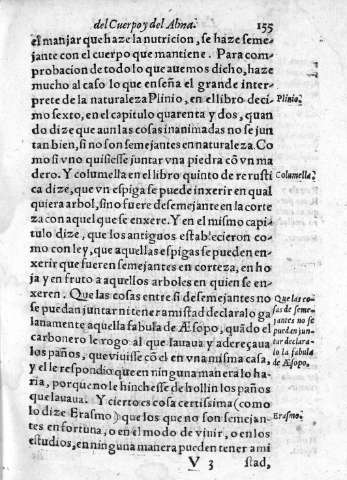 del Cuerpo y del Alma. 155
el manjar que haze la nutricion, se haze seme-
jante con el cuerpo que mantiene. Para com-
probacion de todo lo que auemos dicho, haze
mucho al caso lo que enseña el grande inter-
prete de la naturaleza Plinio, en el libro deci-
Plinio.
mo sexto, en el capitulo quarenta y dos, quan
do dize que aun las cosas inanimadas no se jun
tan bien, si no fon semejantes en naturaleza. Co
mo si vno quisiesse juntar vna piedra cõ vn ma
dero. Y columella en el libro quinto de re rusti
Columella.
ca dize, que vn espiga se puede inxerir en qual
quiera arbol, sino fuere desemejante en la corte
za con aquel que se enxere. Y en el mismo capi
tulo dize, que los antiguos establecieron co-
mo con ley, que aquellas espigas se pueden en-
xerir que fueren semejantes en corteza, en ho
ja y en fruto a aquellos arboles en quien se en-
xeren. Que las cosas entre si desemejantes no
se puedan juntar ni tener amistad declaralo ga
lanamente aquella fabula de Æsopo, quãdo el
carbonero le rogo al que lauaua y adereçaua
los paños, que viuiisse cõ el en vna misma casa,
y el le respondio que en ninguna manera lo ha-
ria, porque no le hinchesse de hollin los paños
que lauaua. Y cierto es cosa certissima (como
lo dize Erasmo) que los que no son semejan-
tes en fortuna, o en el modo de viuir, o en los
estudios, en ninguna manera pueden tener ami
Que las co-
sas de seme-
jantes no se
pueden jun-
tar declara-
lo la fabula
de Æsopo.
Erasmo.
V 3 stad,